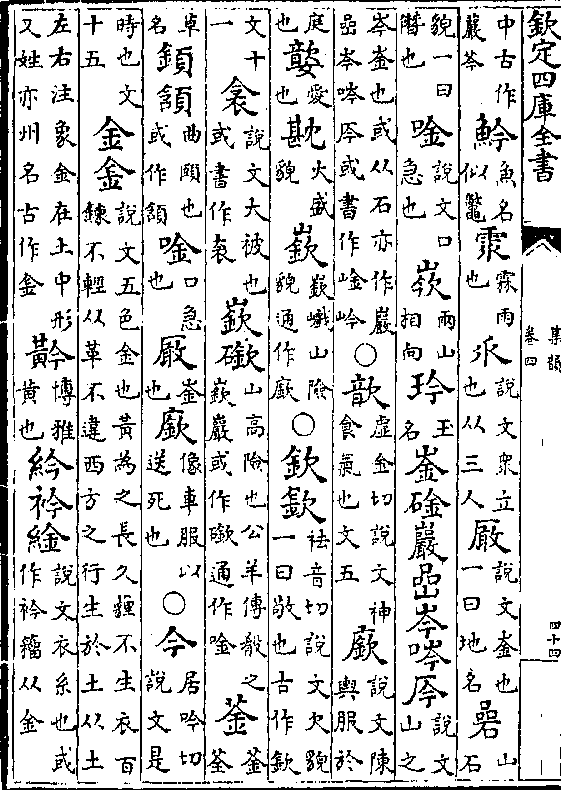 欽定四庫全書 集韻 卷四 四十四
中古作巖岑 魿 魚名似鼈 霒 霖雨也 乑 說文衆立也从三人 厰 說文崟也一曰地名 碞 山石
貌一曰暗也 唫 說文口急也 㟢 兩山相向 玪 玉名 崟碒巖喦岑唥厈 說文山之
岑崟也或从石亦作巖喦岑唥厈或書作崯岭 ○ 歆 虛金切說文神食氣也文五 廞 說文陳輿服於
庭也 愛也 火盛貌 嶔 嶔巇山險貌通作廞 ○ 欽 祛音切說文欠貌一曰敬也古作欽
文十一 衾 說文大被也或書作衾 嶔 山高險也公羊傳殽之嶔巖或作 通作唫 菳 菳荃
草名 顉頷 曲頤也或作頷 唫 口急也 厰 崟也 廞 像車服以送死也 ○ 今 居吟切說文是
時也文十五 金金 說文五色金也黃為之長久薶不生衣百鍊不輕从革不違西方之行生於土从土
左右注象金在土中形又姓亦州名古作金 黅 博雅黃也 紟衿䋮 說文衣糸也或作衿籀从金